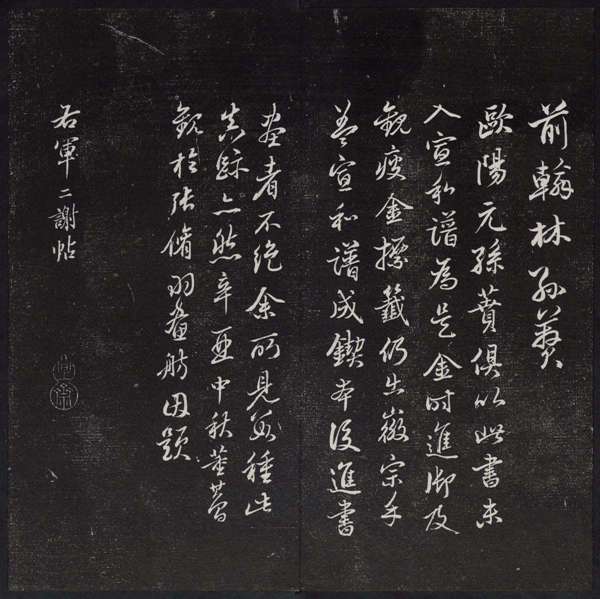 前翰林孫蕡
歐陽元孫蕡俱以此書未
入宣和譜為是金時進御及
觀瘦金標籤仍出徽宗手
蓋宣和譜成鍥本後進書
畫者不絕余所見數種此
真蹟亦然辛亥中秋董其昌
觀於張脩羽畫舫因題
右軍二謝帖